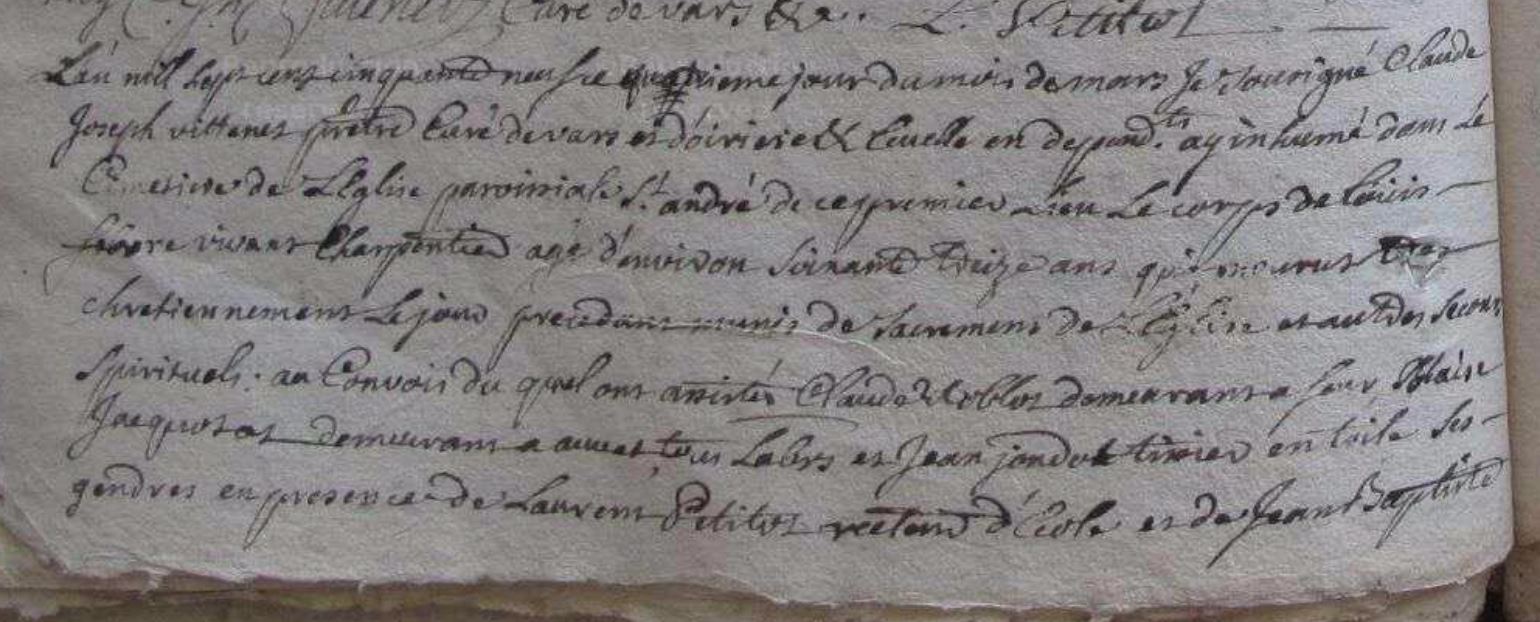 Curé de vars &a. L. Petitot
L'an mill sept cent cinquante neuf le quatrieme jour du mois de mars Je soussigné Claude
Joseph vittenet prêtre Curé de vars et d'oiriere & Cuvelle en depend.ts ay inhumé dans Le
Cimetiere de L'Eglise paroissiale St. andré de ce premier Lieu Le corps de Loüis
favre vivant Charpentier agé d'environ soixante treize ans qui mourut tres
chretiennement Le jour precedant munis de sacremens de L'Eglise et aut. des secours
spirituels. au Convois du quel ont assistés Claude demeurant a Blaise
Jacquot demeurant a auvet tous Labrs et Jean tixier en toile ses
gendres en presence de Laurent Petitot recteur d'école et de Jean Baptiste